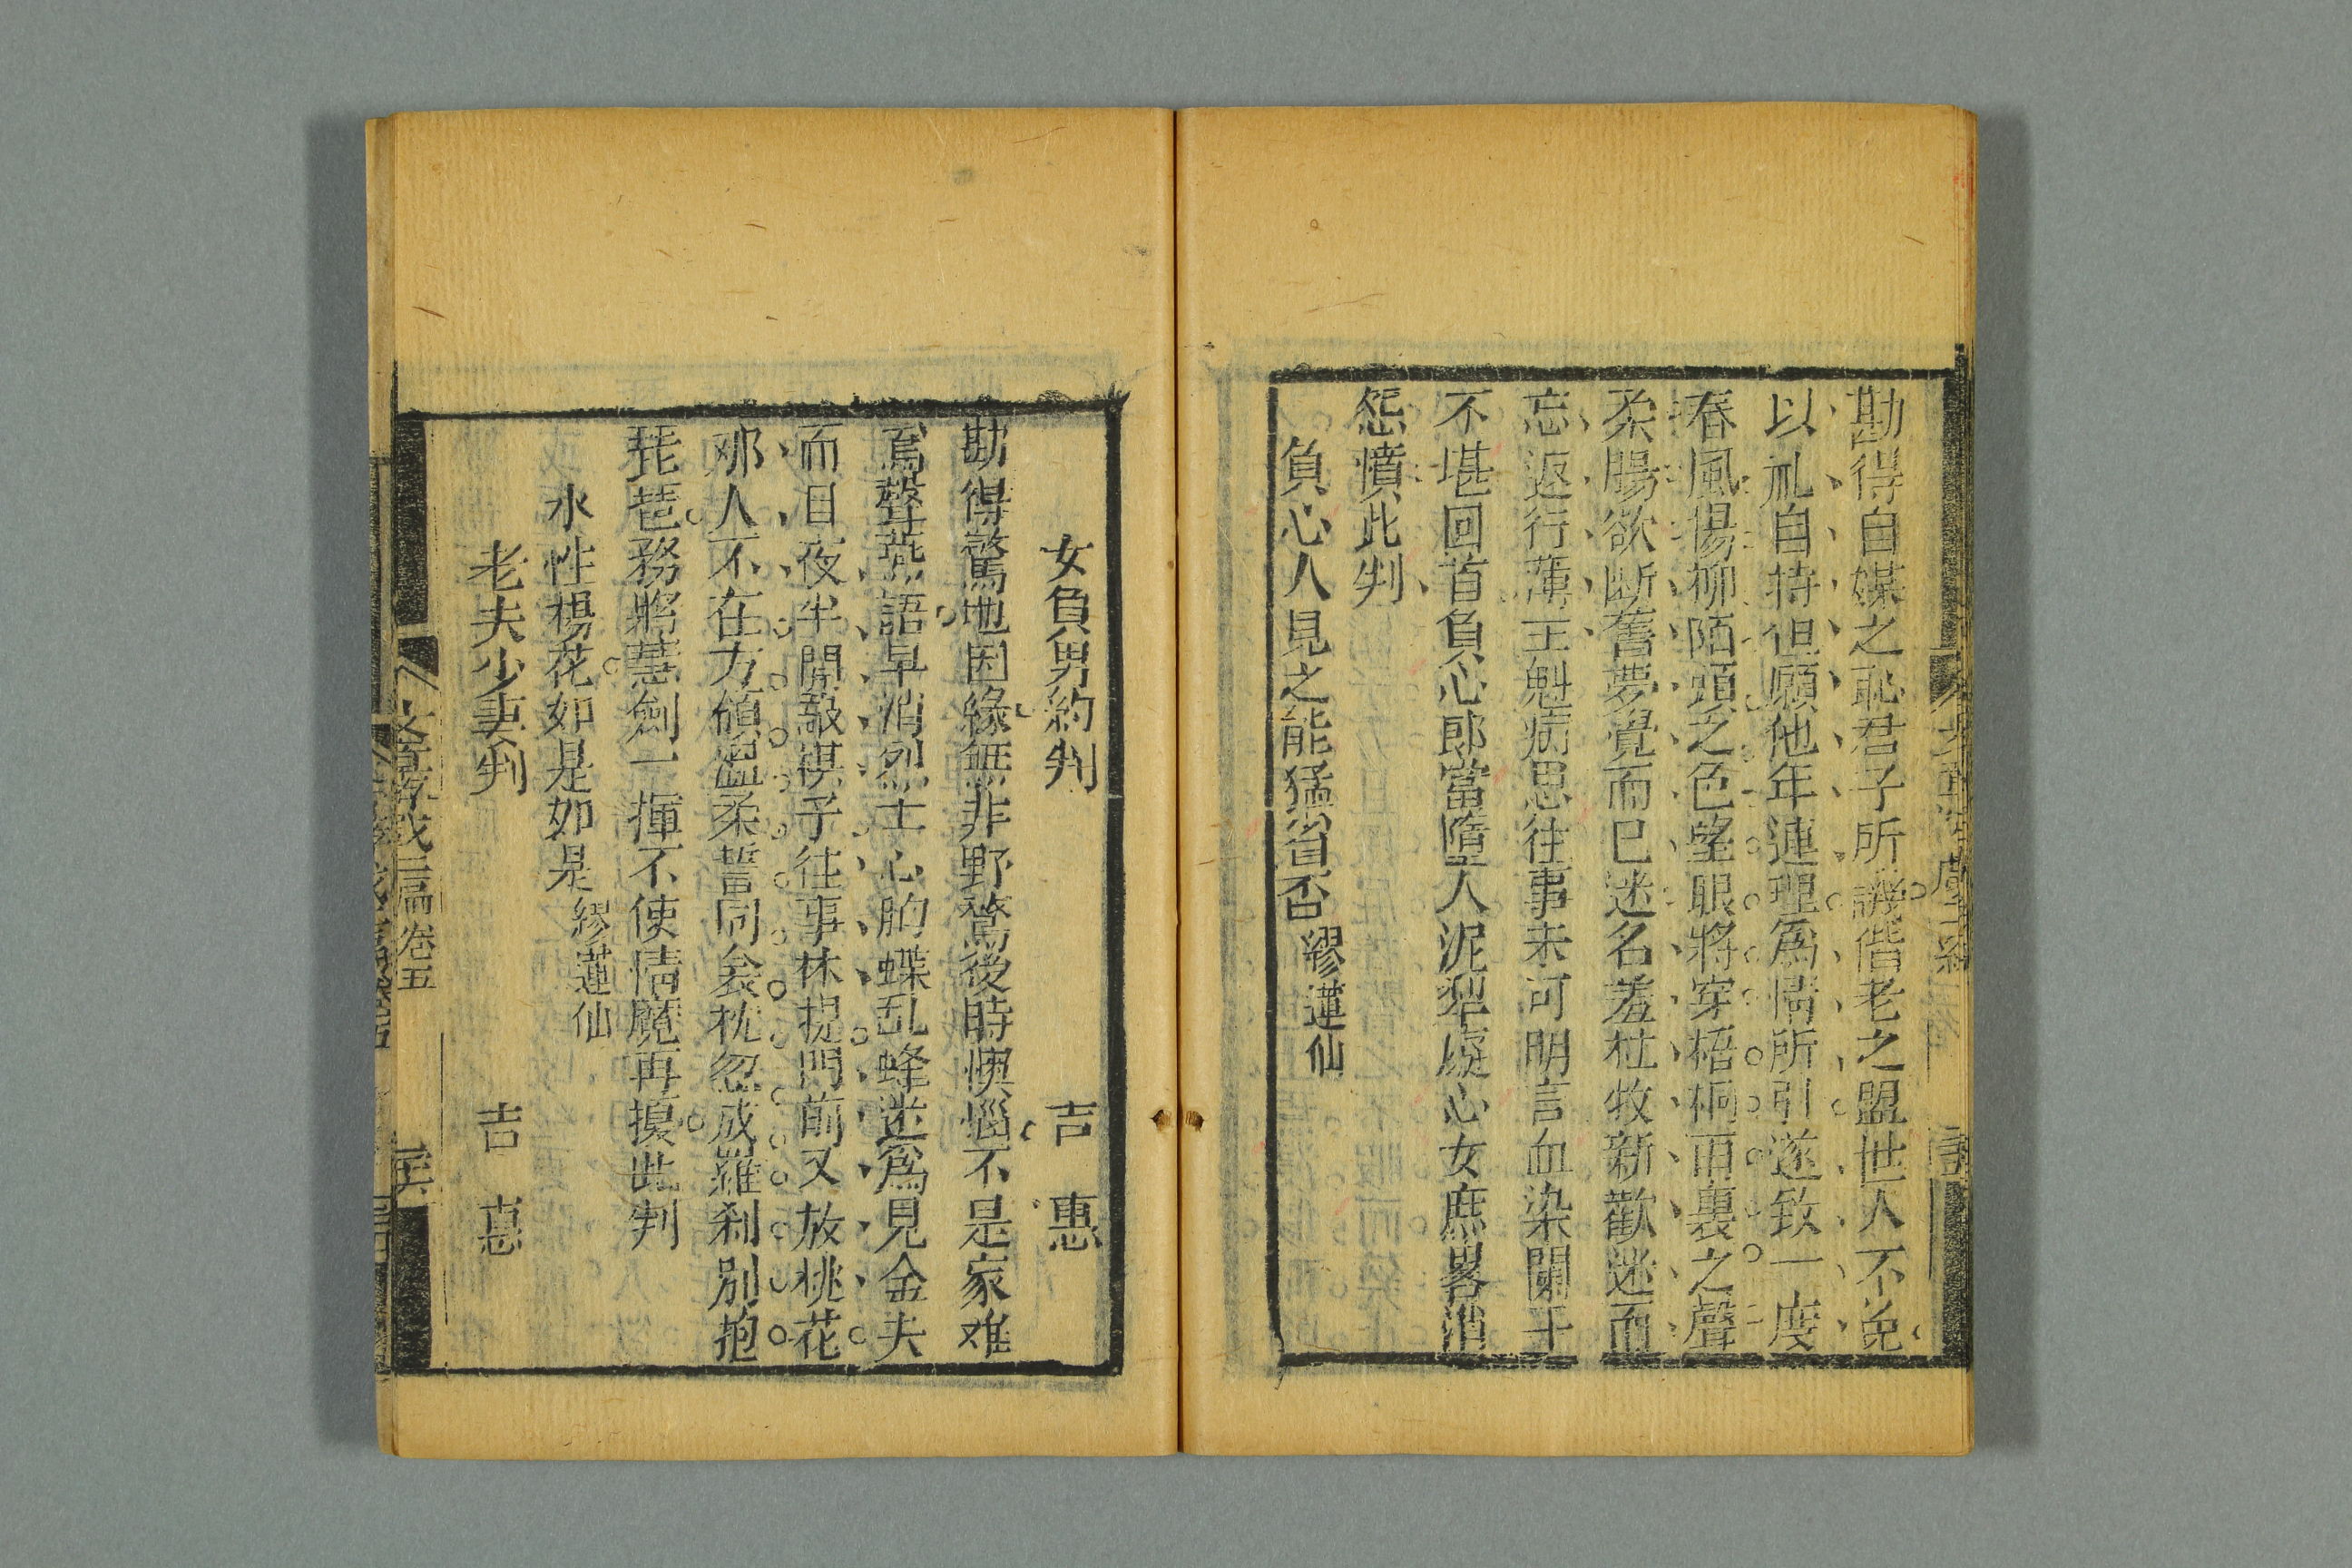 勘得自媒之恥君子所譏偕老之盟世人不免
以礼自持但願他年連理爲情所引遂致一度
春風楊柳陌頭之色望眼將穿梧桐雨裏之聲
柔腸欲断舊夢覺而巳迷名羞杜牧新歡迷而
忘返行薄王魁病思往事未可明言血染闌干
不堪回首負心郎當墮入泥犂癡心女庶畧消
怨憤此判
負心人見之能猛省否 繆蓮仙
女負男約判 吉惠
勘得驚地因緣無非野鶩後時懊惱不是家难
鴬聲燕語早消烈士心肭蝶乱蜂迷爲見金夫
而目夜半閒敲棋子往事休提門前又放桃花
那人不在方傾溫柔誓同衾枕忽成羅刹別抱
琵琶務將慧劍一揮不使情魔再擾此判
水性楊花如是如是 繆蓮仙
老夫少妻判 吉惠
文章游戲二編 卷五